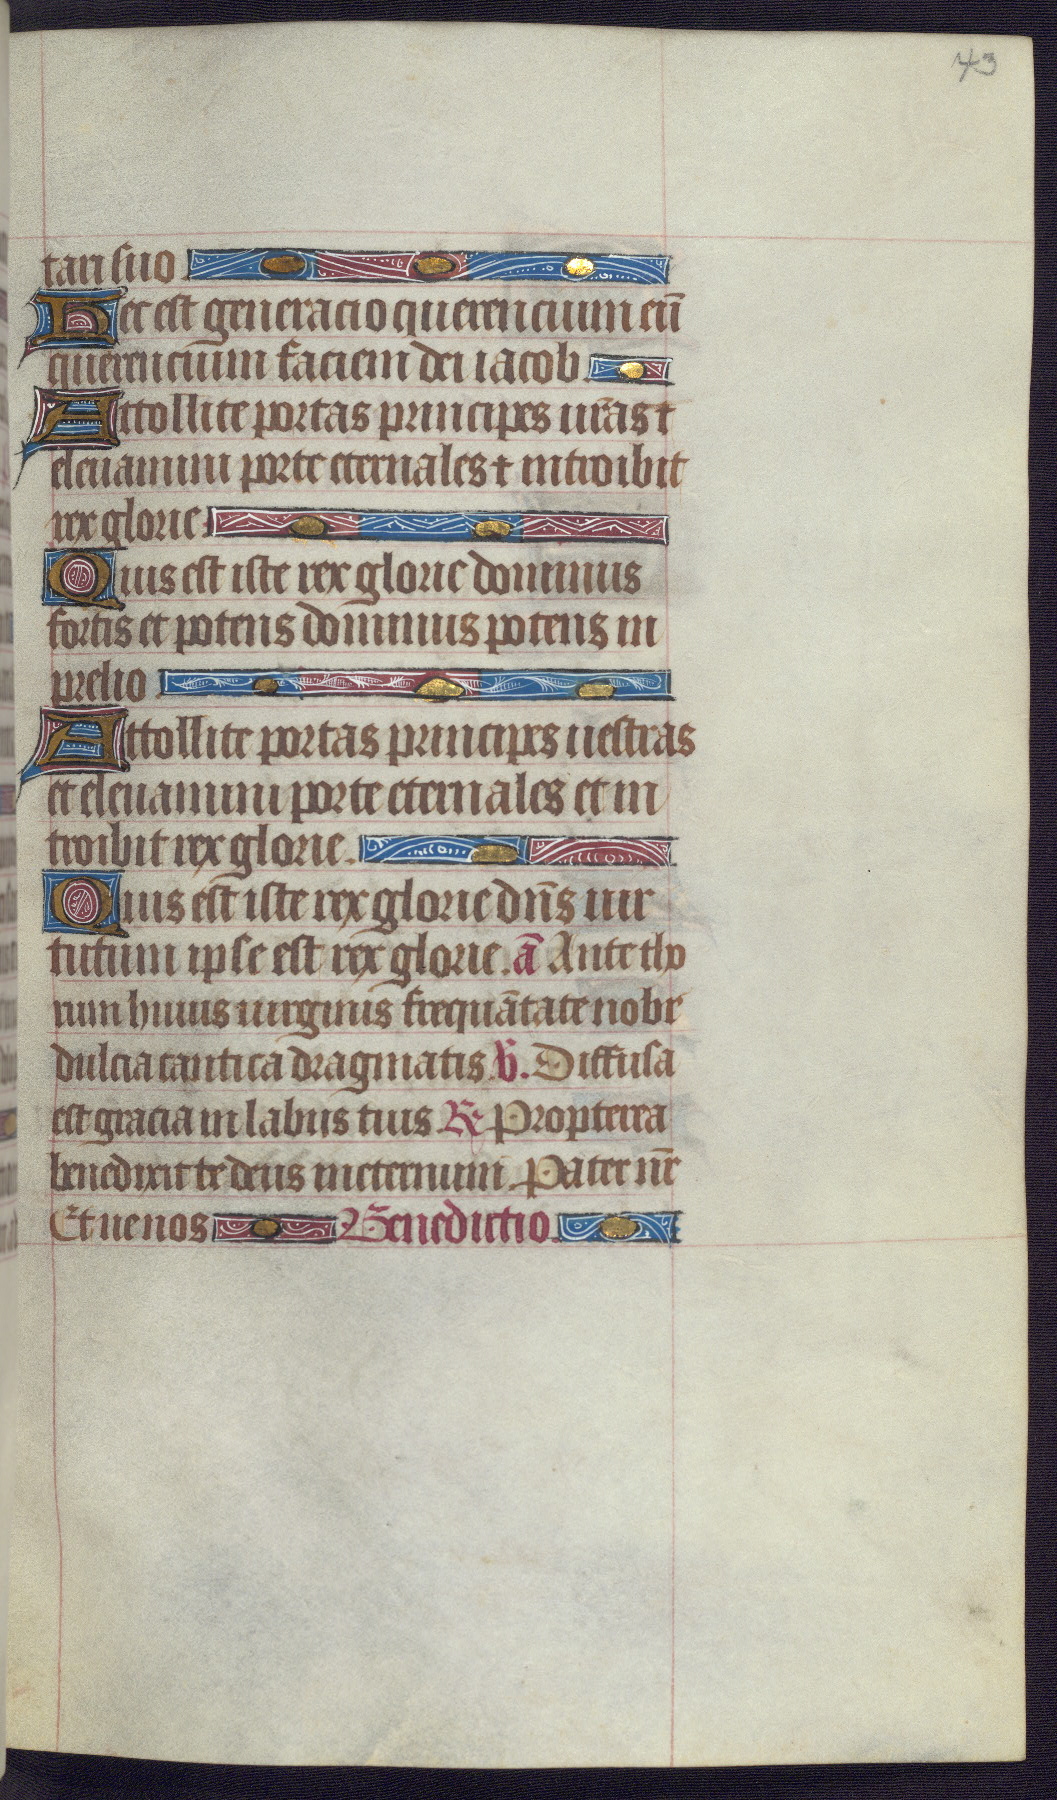 43
tari suo
Hec est generacio querencium eū
querencium faciem dei iacob.
Attollite portas principes ur̄as ⁊
eleuamini porte eternales ⁊ introibit
rex glorie.
Quis est iste rex glorie dominus
fortis et potens dominus potens in
prelio
Attollite portas principes uestras
et eleuamini porte eternales et in
troibit rex glorie.
Quis est iste rex glorie dn̄s uir
tutum ipse est rex glorie. ā Ante tho
rum huius uirginis frequātate nobr̄
dulcia cantica dragmatis. v̄. Diffusa
est gracia in labiis tuis R̄ Propterea
benedixit te deus in eternum. Pater nr̄
Et ne nos Benedictio.